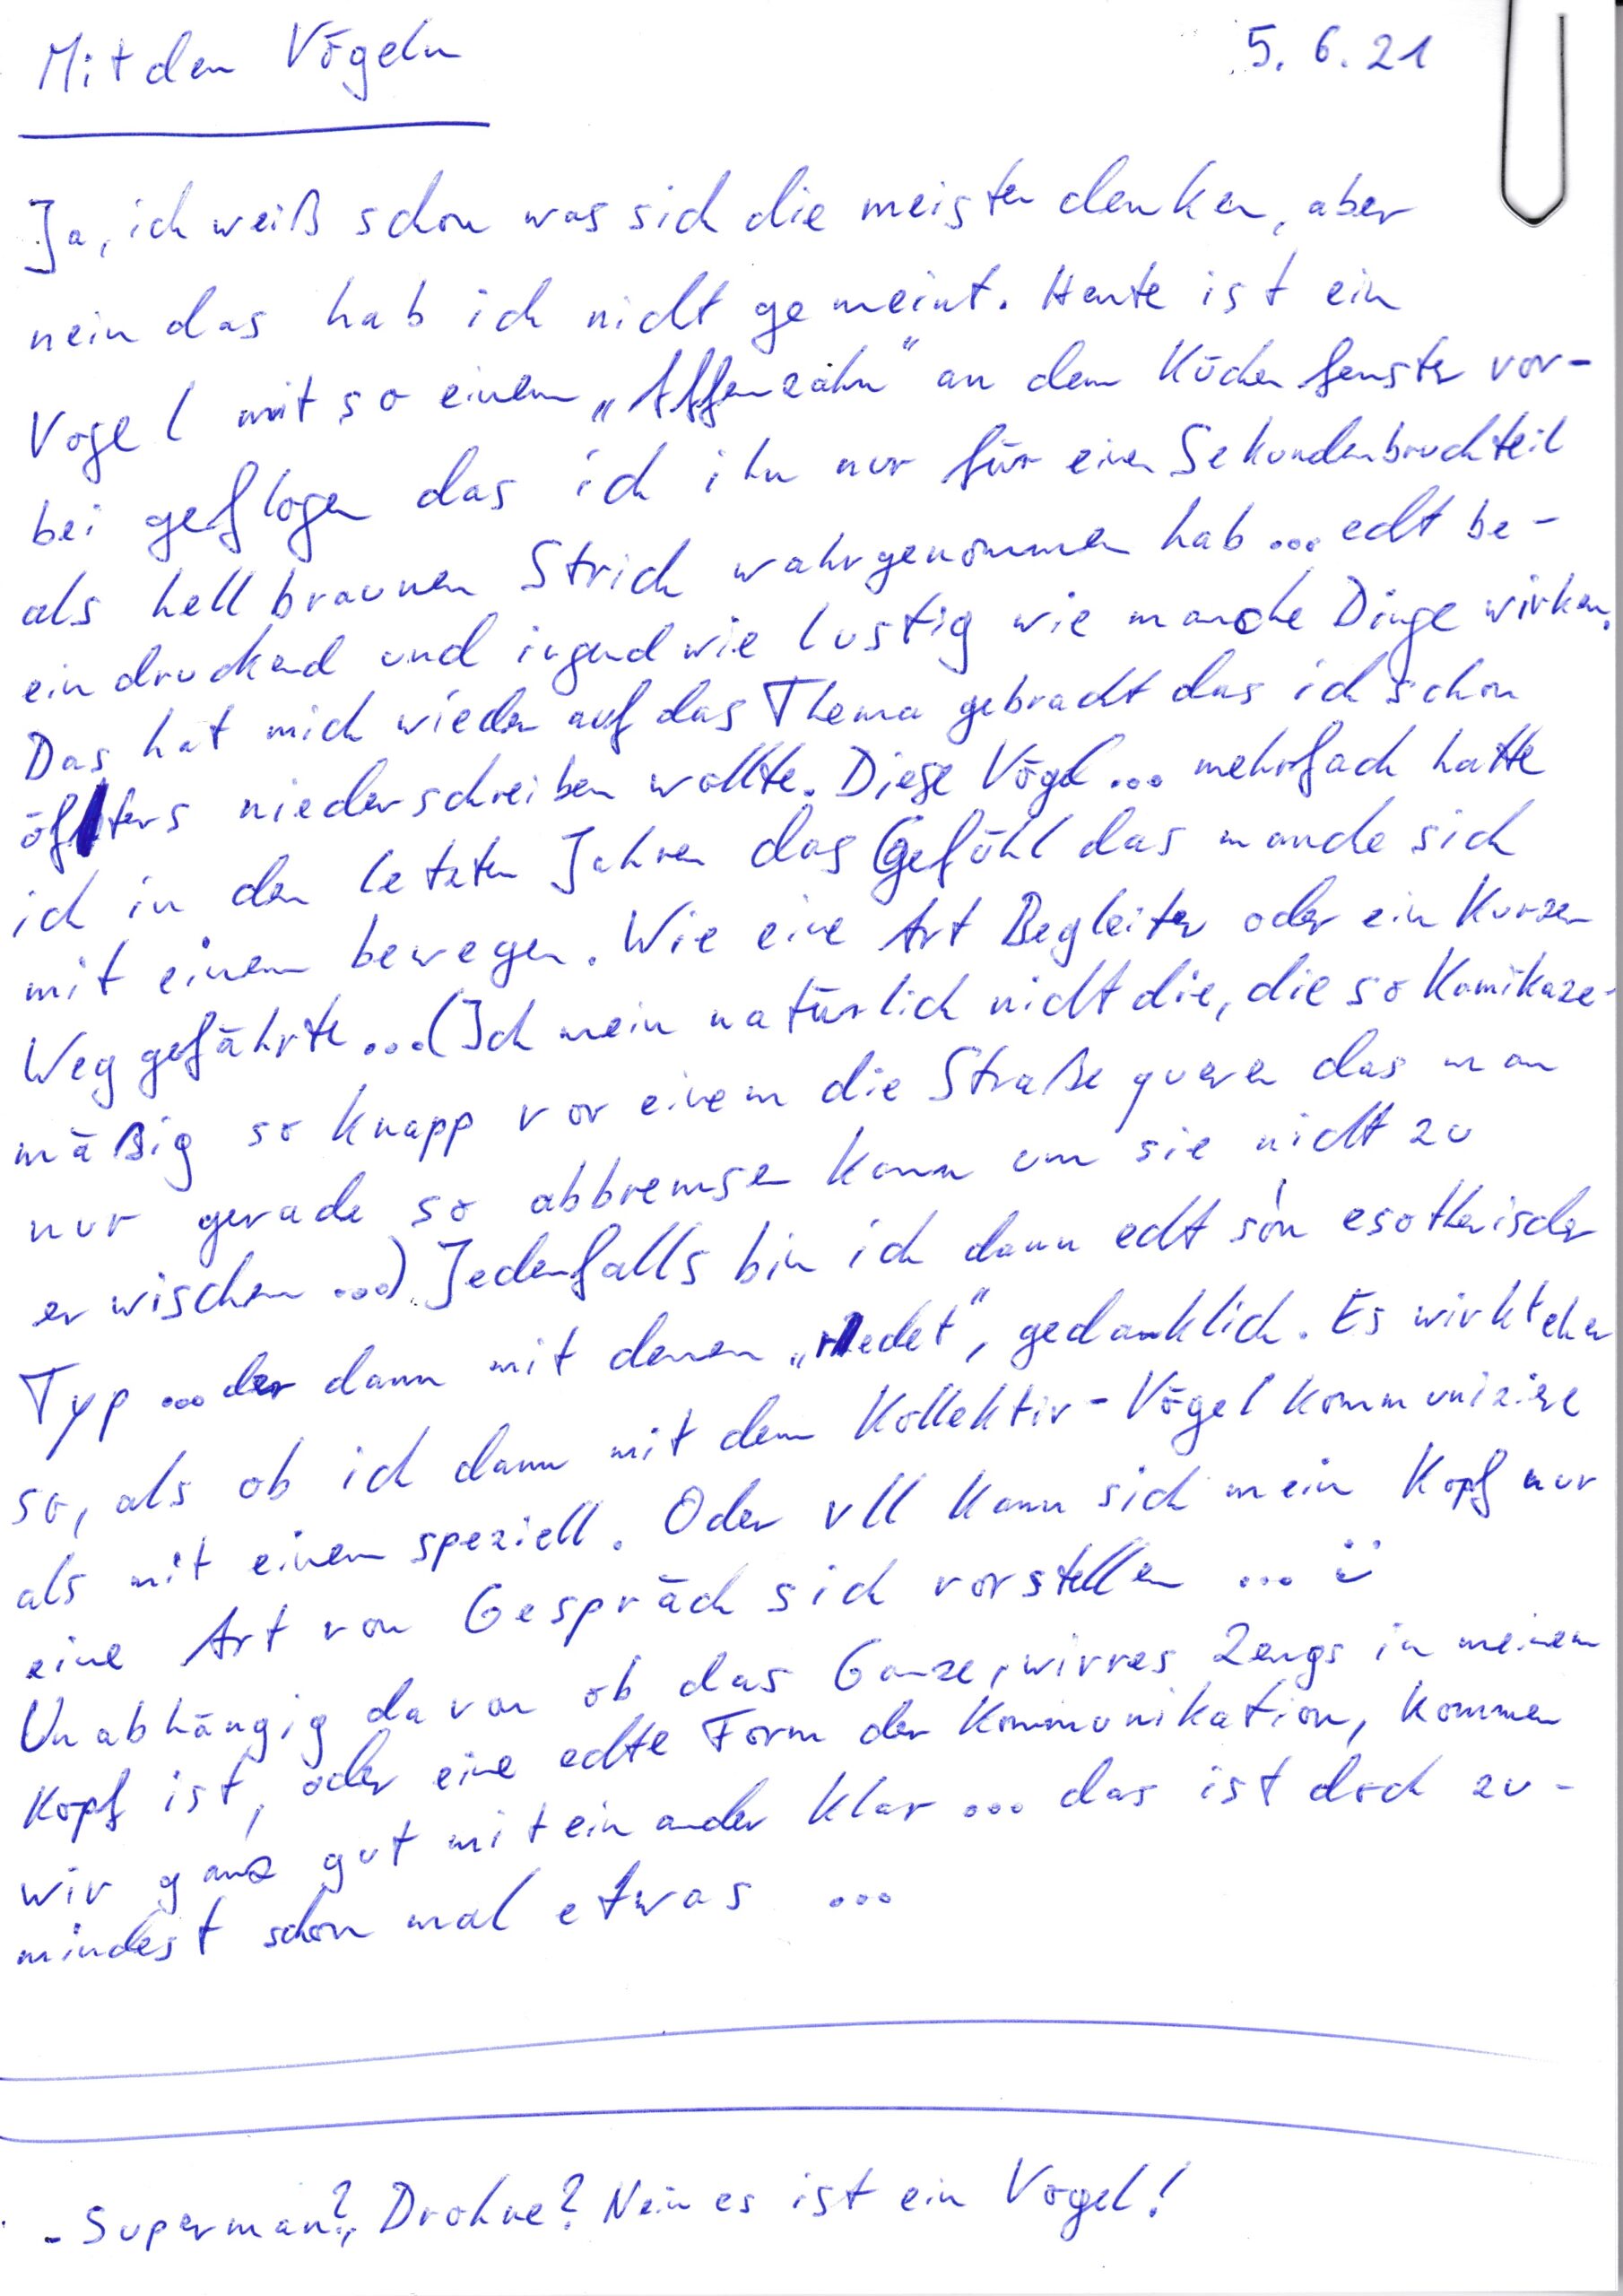 Mit den Vögeln
5.6.21
Ja, ich weiß schon was sich die meisten denken, aber
nein das hab ich nicht gemeint. Heute ist ein
Vogel mit so einem „Affenzahn" an dem Küchenfenster vor-
bei geflogen das ich ihn nur für einen Sekundenbruchteil
als hellbraunen Strich wahrgenommen hab... echt be-
eindruckend und irgendwie lustig wie manche Dinge wirken.
Das hat mich wieder auf das Thema gebracht das ich schon
öfters niederschreiben wollte. Diese Vögel... mehrfach hatte
ich in den letzten Jahren das Gefühl das manche sich
mit einem bewegen. Wie eine Art Begleiter oder ein Kurzer
Weggefährte...(Ich mein natürlich nicht die, die so Kamikaze-
mäßig so knapp vor einem die Straße queren das man
nur gerade so abbremsen kann um sie nicht zu
erwischen...) Jedenfalls bin ich dann echt so'n esotherischer
Typ... der dann mit denen „redet", gedanklich. Es wirkt eher
so, als ob ich dann mit dem Kollektiv-Vögel kommuniziere
als mit einem speziell. Oder vll kann sich mein Kopf nur
eine Art von Gespräch sich vorstellen ... ü
Unabhängig davon ob das Ganze, wirres Zeugs in meinem
Kopf ist, oder eine echte Form der Kommunikation, kommen
wir ganz gut miteinander klar... das ist doch zu-
mindest schon mal etwas ...
- Superman?, Drohne? Nein es ist ein Vogel!